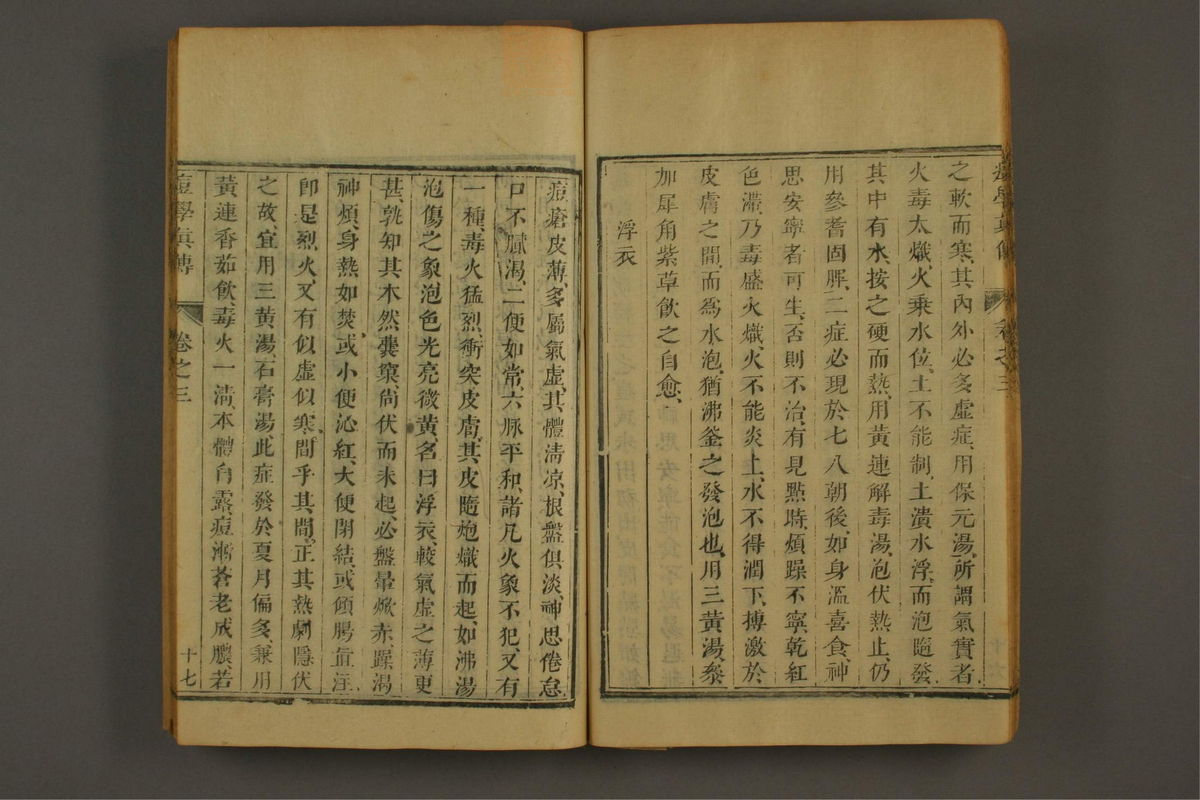 之軟而寒、其內外必多虛症、用保元湯、所謂氣實者、
火毒太熾、火乘水位、土不能制、土潰水浮、而泡隨發、
其中有水、按之硬而熱、用黃連解毒湯、泡伏熱止、仍
用參耆固脾、二症必現於七八朝後、如身溫喜食、神
思安寧者可生、否則不治、有見點時、煩躁不寧、乾紅
色滯、乃毒盛火熾、火不能炎上、水不得潤下、搏激於
皮膚之間、而為水泡、猶沸釜之發泡也、用三黃湯、參
加犀角紫草飲之自愈、
浮衣
痘瘡皮薄、多屬氣虛、其體清凉、根盤俱淡、神思倦怠、
口不膩渴、二便如常、六脉平和、諸凡火象不犯、又有
一種、毒火猛烈、衝突皮膚、其皮隨炮熾而起、如沸湯
泡傷之象、泡色光亮微黃、名曰浮衣、較氣虛之薄更
甚、孰知其木然囊窠尚伏而未起、必盤暈焮赤、躁渴
神煩、身熱如焚、或小便沁紅、大便閉結、或傾腸直注、
卽是烈火、又有似虛似寒、間乎其間、正其熱劇隱伏
之故、宜用三黃湯石膏湯、此症發於夏月偏多、兼用
黃連香茹飲、毒火一清、本體自露、痘漸蒼老成膿、若
痘學眞傳
卷之三
十七